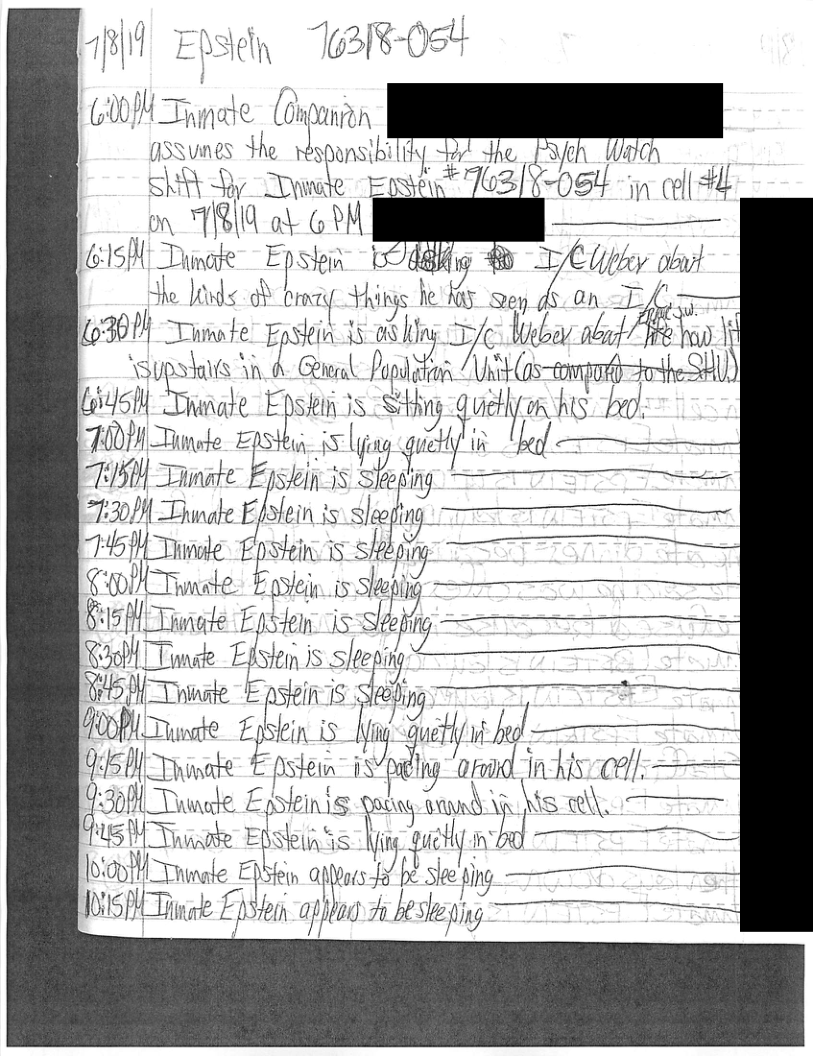 7/8/19 Epstein 76318-054
6:00PM Inmate Companion
assumes the responsibility for the Psych Watch
shift for Inmate Epstein #76318-054 in cell #4
on 7/8/19 at 6 PM
6:15PM Inmate Epstein is asking I/C Weber about
the kinds of crazy things he has seen as an I/C.
6:30PM Inmate Epstein is asking I/C Weber about how life
is upstairs in a General Population Unit (as compared to the SHU)
6:45PM Inmate Epstein is sitting quetly on his bed.
7:00PM Inmate Epstein is lying quetly in bed
7:15PM Inmate Epstein is sleeping
7:30PM Inmate Epstein is sleeping
7:45PM Inmate Epstein is sleeping
8:00PM Inmate Epstein is sleeping
8:15PM Inmate Epstein is sleeping
8:30PM Inmate Epstein is sleeping
8:45PM Inmate Epstein is sleeping
9:00PM Inmate Epstein is lying quetly in bed
9:15PM Inmate Epstein is pacing around in his cell.
9:30PM Inmate Epstein is pacing around in his cell.
9:45PM Inmate Epstein is lying quetly in bed
10:00PM Inmate Epstein appears to be sleeping
10:15PM Inmate Epstein appears to be sleeping